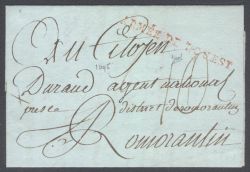 ARMÉE DE L'OUEST
Au Citoyen
Durand agent national
district de romorantin
Romorantin